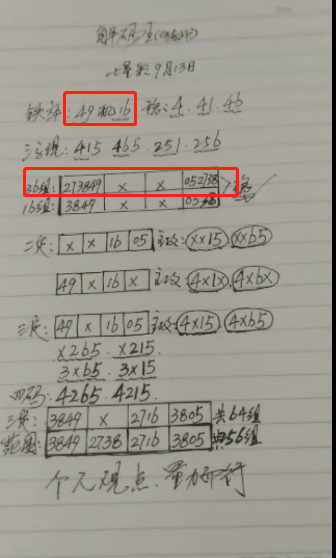 解码王
七星彩9月13日
铁率:49配16 稳:4.41.46
三字现:415.465.251.256
36组:273849 X X 052738
16组:3849 X X 05
二定:X X 16 05 主攻:XX15 XX65
49 X 16 X 主攻:4X1X.4X6X
三定:49 X 16 05 主攻:4X15.4X65
X265.X215.
3X65.3X15
四码:4265.4215.
三定 3849 X 2716 3805 共64组
范围:3849 2738 2716 3805 共256组
个人观点.量力而行